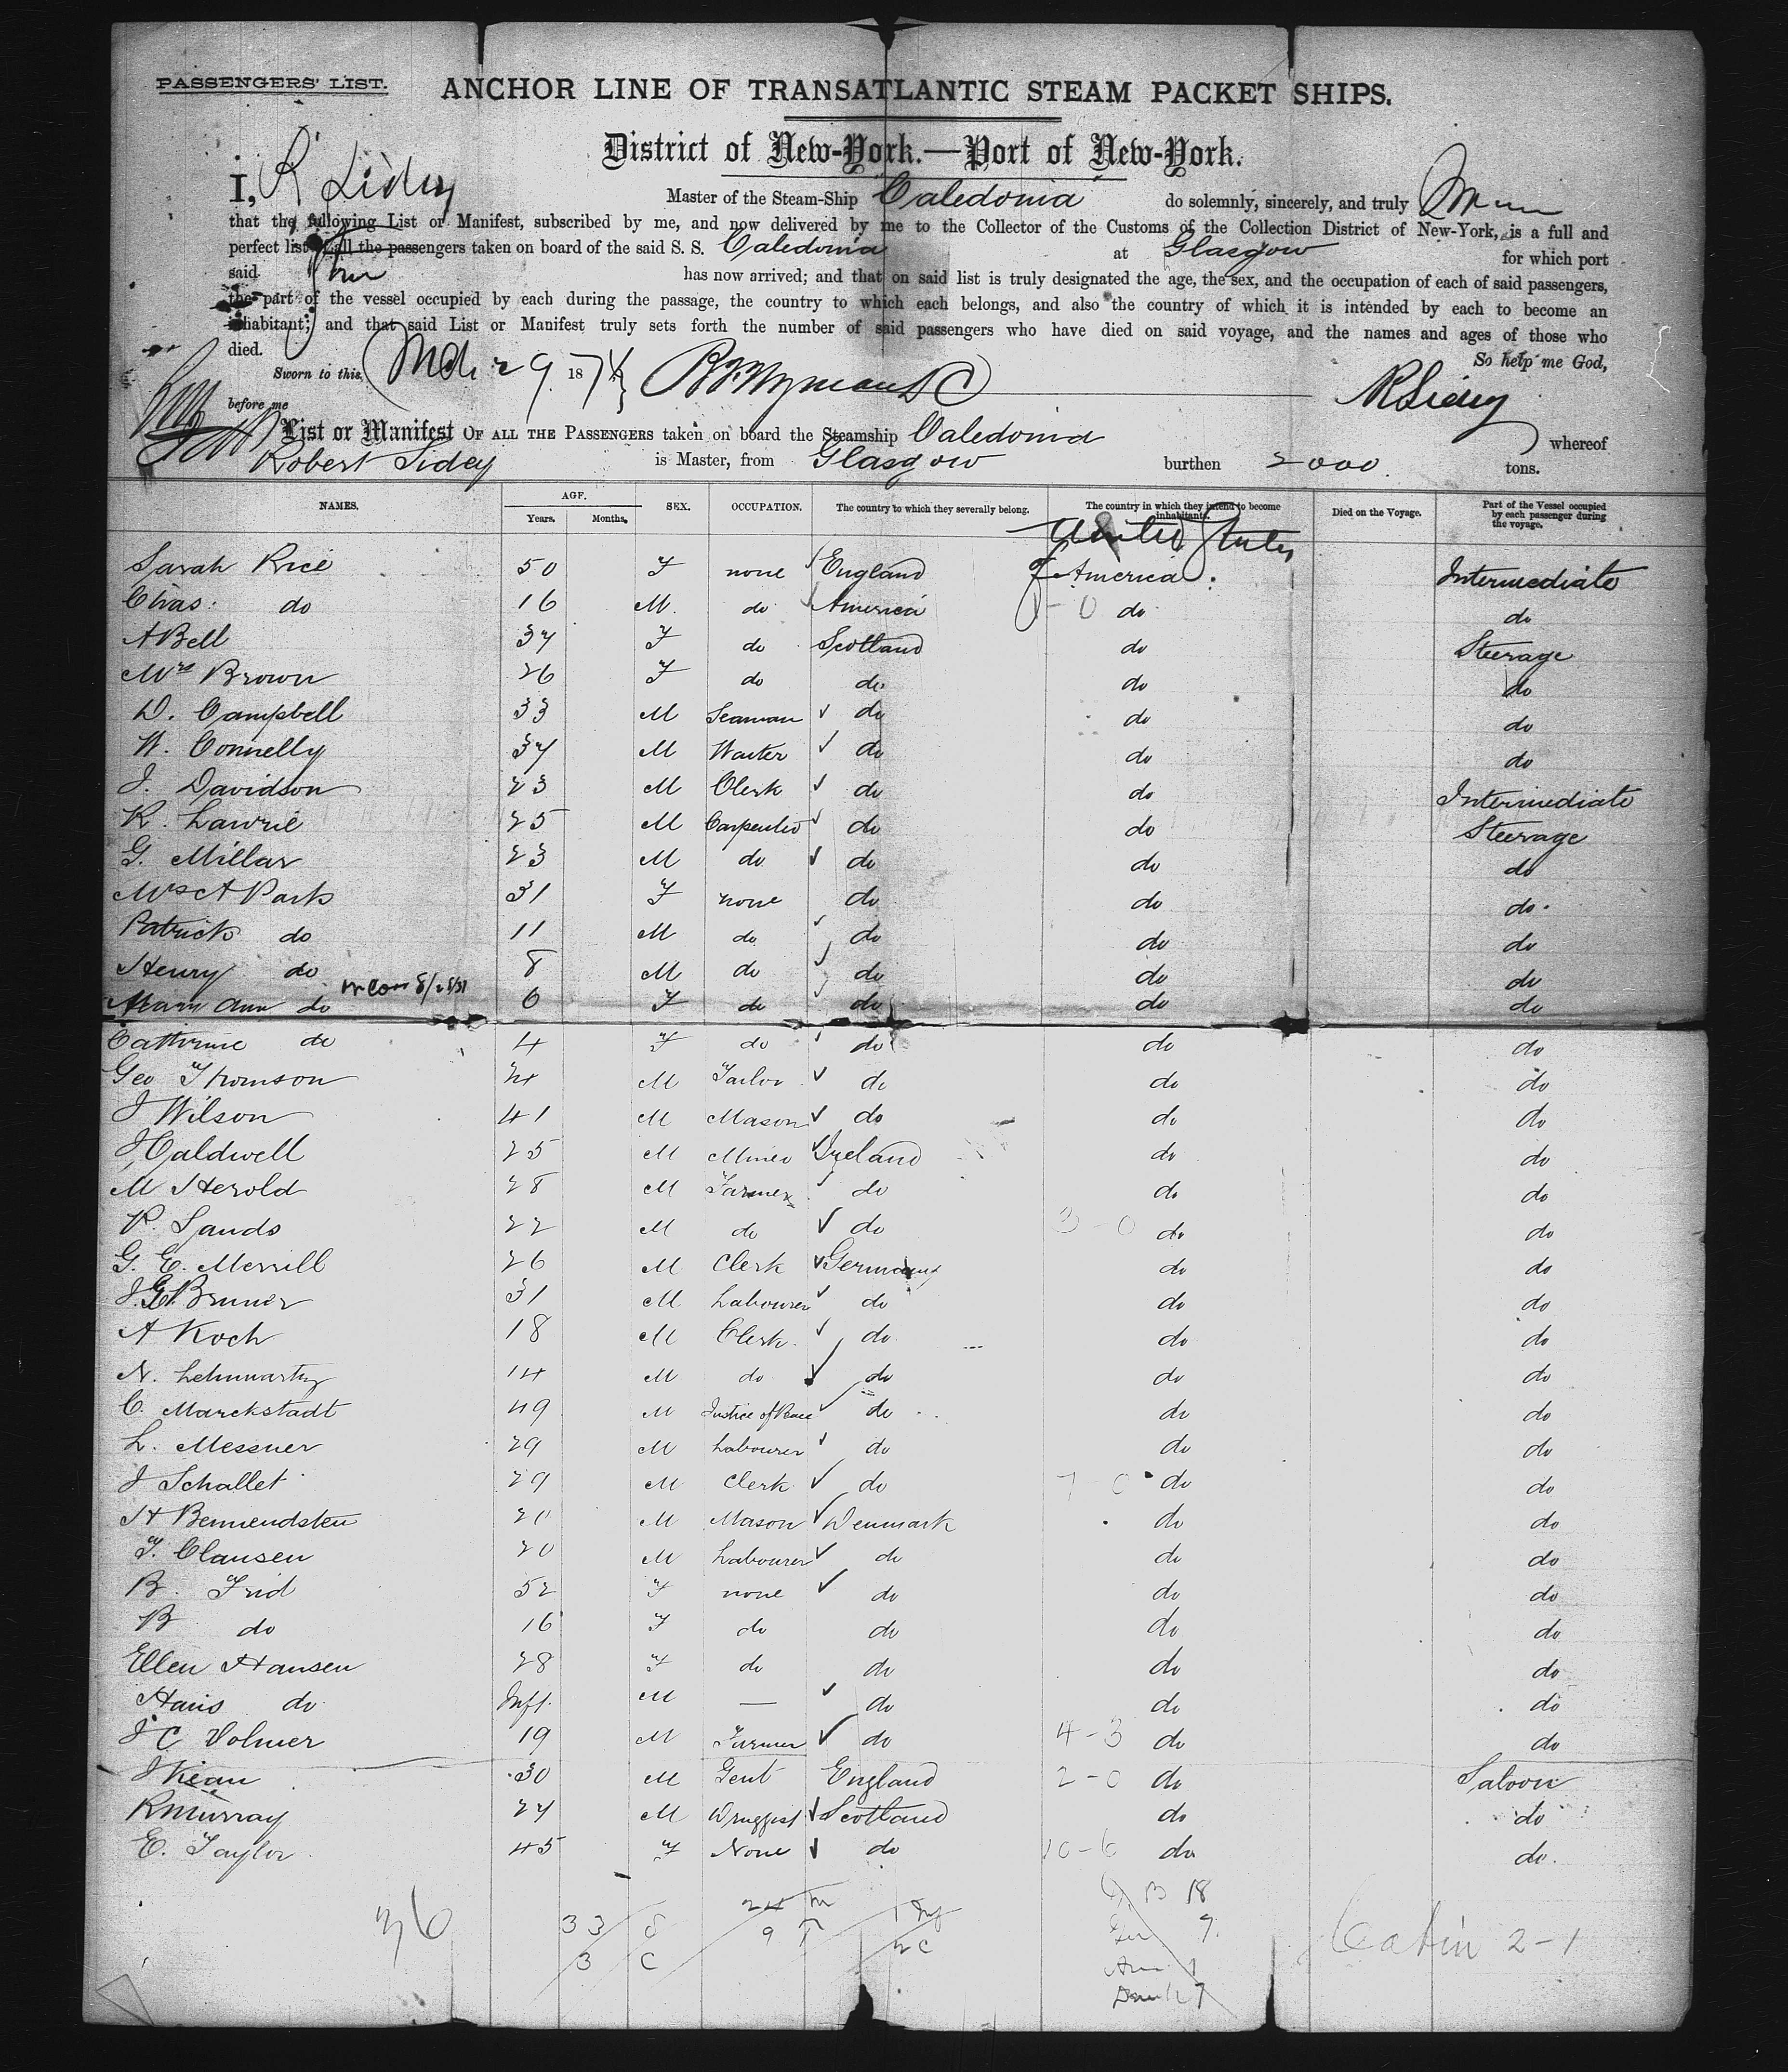 PASSENGERS' LIST.
ANCHOR LINE OF TRANSATLANTIC STEAM PACKET SHIPS.
District of New-York.—Port of New-York.
I, R Sidey Master of the Steam-Ship Caledonia do solemnly, sincerely, and truly
that the following List or Manifest, subscribed by me, and now delivered by me to the Collector of the Customs of the Collection District of New-York, is a full and
perfect list of all the passengers taken on board of the said S. S. Caledonia at Glasgow for which port
said has now arrived; and that on said list is truly designated the age, the sex, and the occupation of each of said passengers,
the part of the vessel occupied by each during the passage, the country to which each belongs, and also the country of which it is intended by each to become an
inhabitant; and that said List or Manifest truly sets forth the number of said passengers who have died on said voyage, and the names and ages of those who
died. So help me God,
Sworn to this, Mch 29 1874
before me R Sidey
List or Manifest OF ALL THE PASSENGERS taken on board the Steamship Caledonia whereof
Robert Sidey is Master, from Glasgow burthen 2000 tons.
NAMES. AGE. Years. Months. SEX. OCCUPATION. The country to which they severally belong. The country in which they intend to become inhabitants. Died on the Voyage. Part of the Vessel occupied by each passenger during the voyage.
United States
Sarah Rice 50 F none England of America Intermediate
Chas. do 16 M. do America do do
A Bell 37 F do Scotland do Steerage
Mrs Brown 26 F do do do do
D. Campbell 33 M Seaman do do do
W. Connelly 37 M Waiter do do do
J. Davidson 23 M Clerk do do Intermediate
R. Lawrie 25 M Carpenter do do Steerage
G. Millar 23 M do do do do
Mrs A Park 31 F none do do do
Patrick do 11 M do do do do
Henry do 8 M do do do do
Mary Ann do 6 F do do do do
Catherine do 4 F do do do do
Geo Thomson 24 M Tailor do do do
J Wilson 41 M Mason do do do
J Caldwell 25 M Miner Ireland do do
M Herold 28 M Farmer do do do
R. Sands 22 M do do 3-0 do do
G. E. Merrill 26 M Clerk Germany do do
J. G. Bruner 31 M Labourer do do do
A Koch 18 M Clerk do do do
N. 14 M do do do do
C. Marckstadt 49 M Justice of Peace do do do
L. Messner 29 M Labourer do do do
J Schallet 29 M Clerk do 7-0 do do
H Bennendsten 20 M Mason Denmark do do
T. Clausen 20 M Labourer do do do
B. Frid 52 F none do do do
B do 16 F do do do do
Ellen Hansen 28 F do do do do
Hans do Inft. M — do do do
J C Volmer 19 M Farmer do 4-3 do do
J Kean 30 M Gent England 2-0 do Saloon
R Murray 24 M Druggist Scotland do do
E. Taylor 45 F None do 10-6 do do
36 33 S 24 m 1 Inf G B 18
3 C 9 F 2 C Ger 7 Cabin 2-1
Am 1
Denk 7